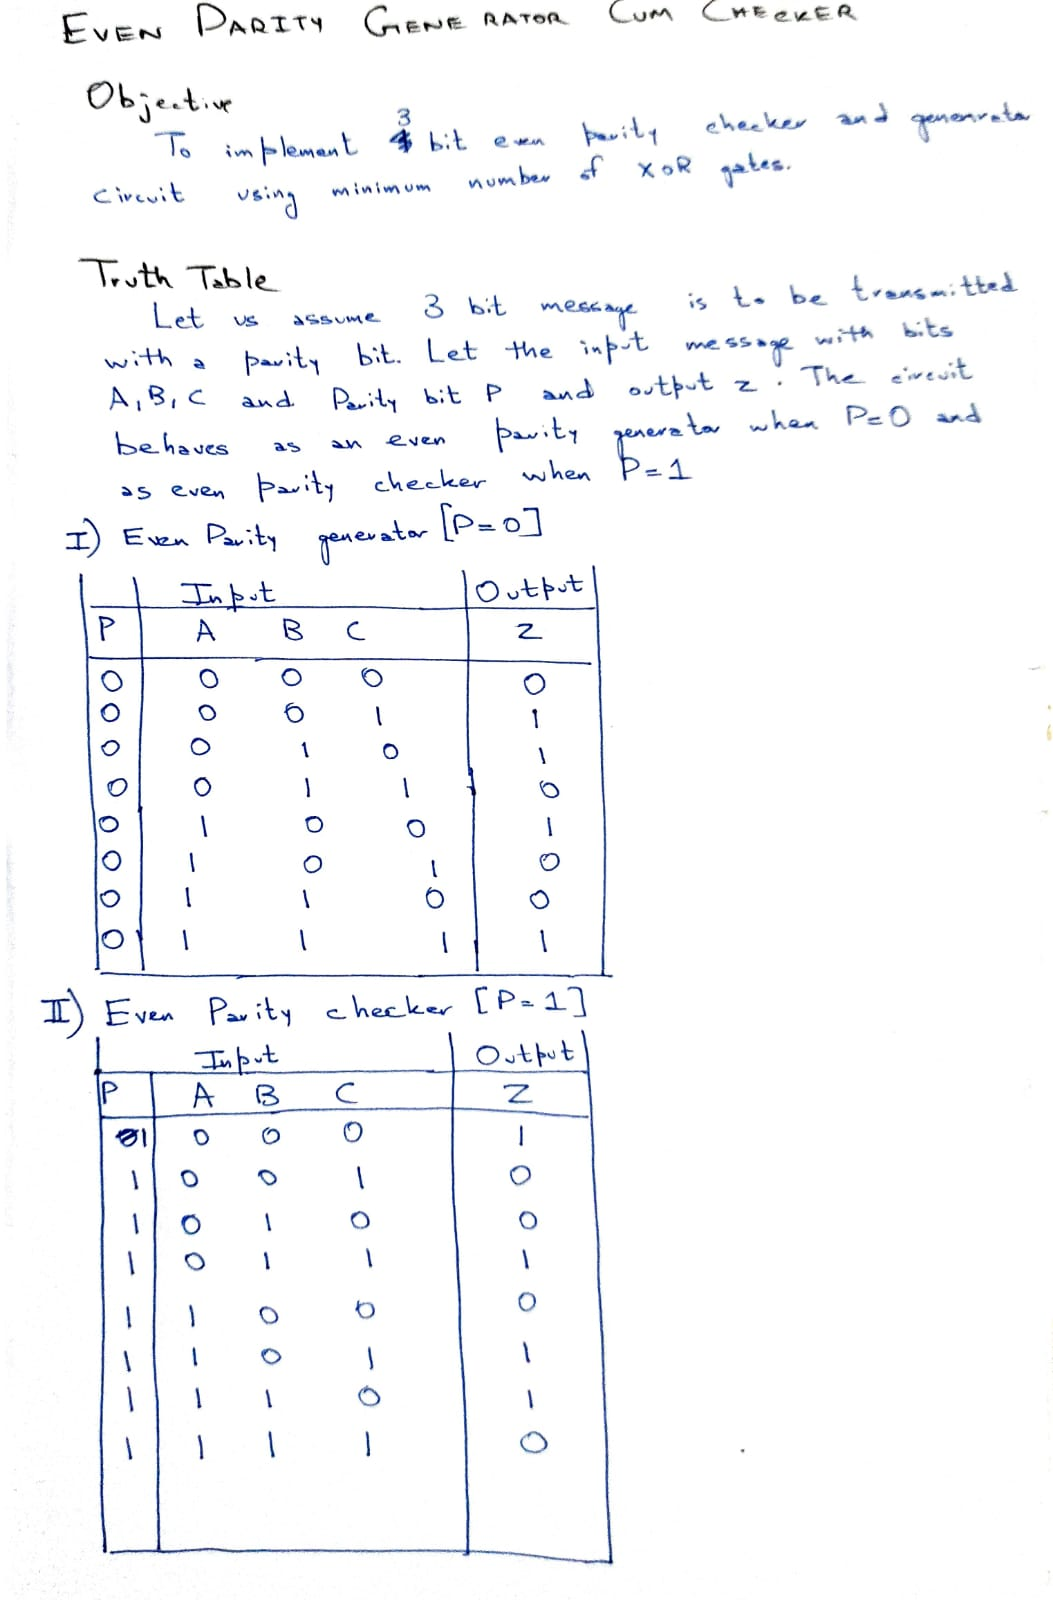 EVEN PARITY GENERATOR CUM CHECKER
Objective
To implement 3 bit even parity checker and genenrator
circuit using minimum number of XOR gates.
Truth Table
Let us assume 3 bit message is to be transmitted
with a parity bit. Let the input message with bits
A, B, C and Parity bit P and output z. The circuit
behaves as an even parity generator when P=0 and
as even parity checker when P=1
I) Even Parity generator [P=0]
Input Output
P A B C Z
0 0 0 0 0
0 0 0 1 1
0 0 1 0 1
0 0 1 1 0
0 1 0 0 1
0 1 0 1 0
0 1 1 0 0
0 1 1 1 1
II) Even Parity checker [P=1]
Input Output
P A B C Z
1 0 0 0 1
1 0 0 1 0
1 0 1 0 0
1 0 1 1 1
1 1 0 0 0
1 1 0 1 1
1 1 1 0 1
1 1 1 1 0